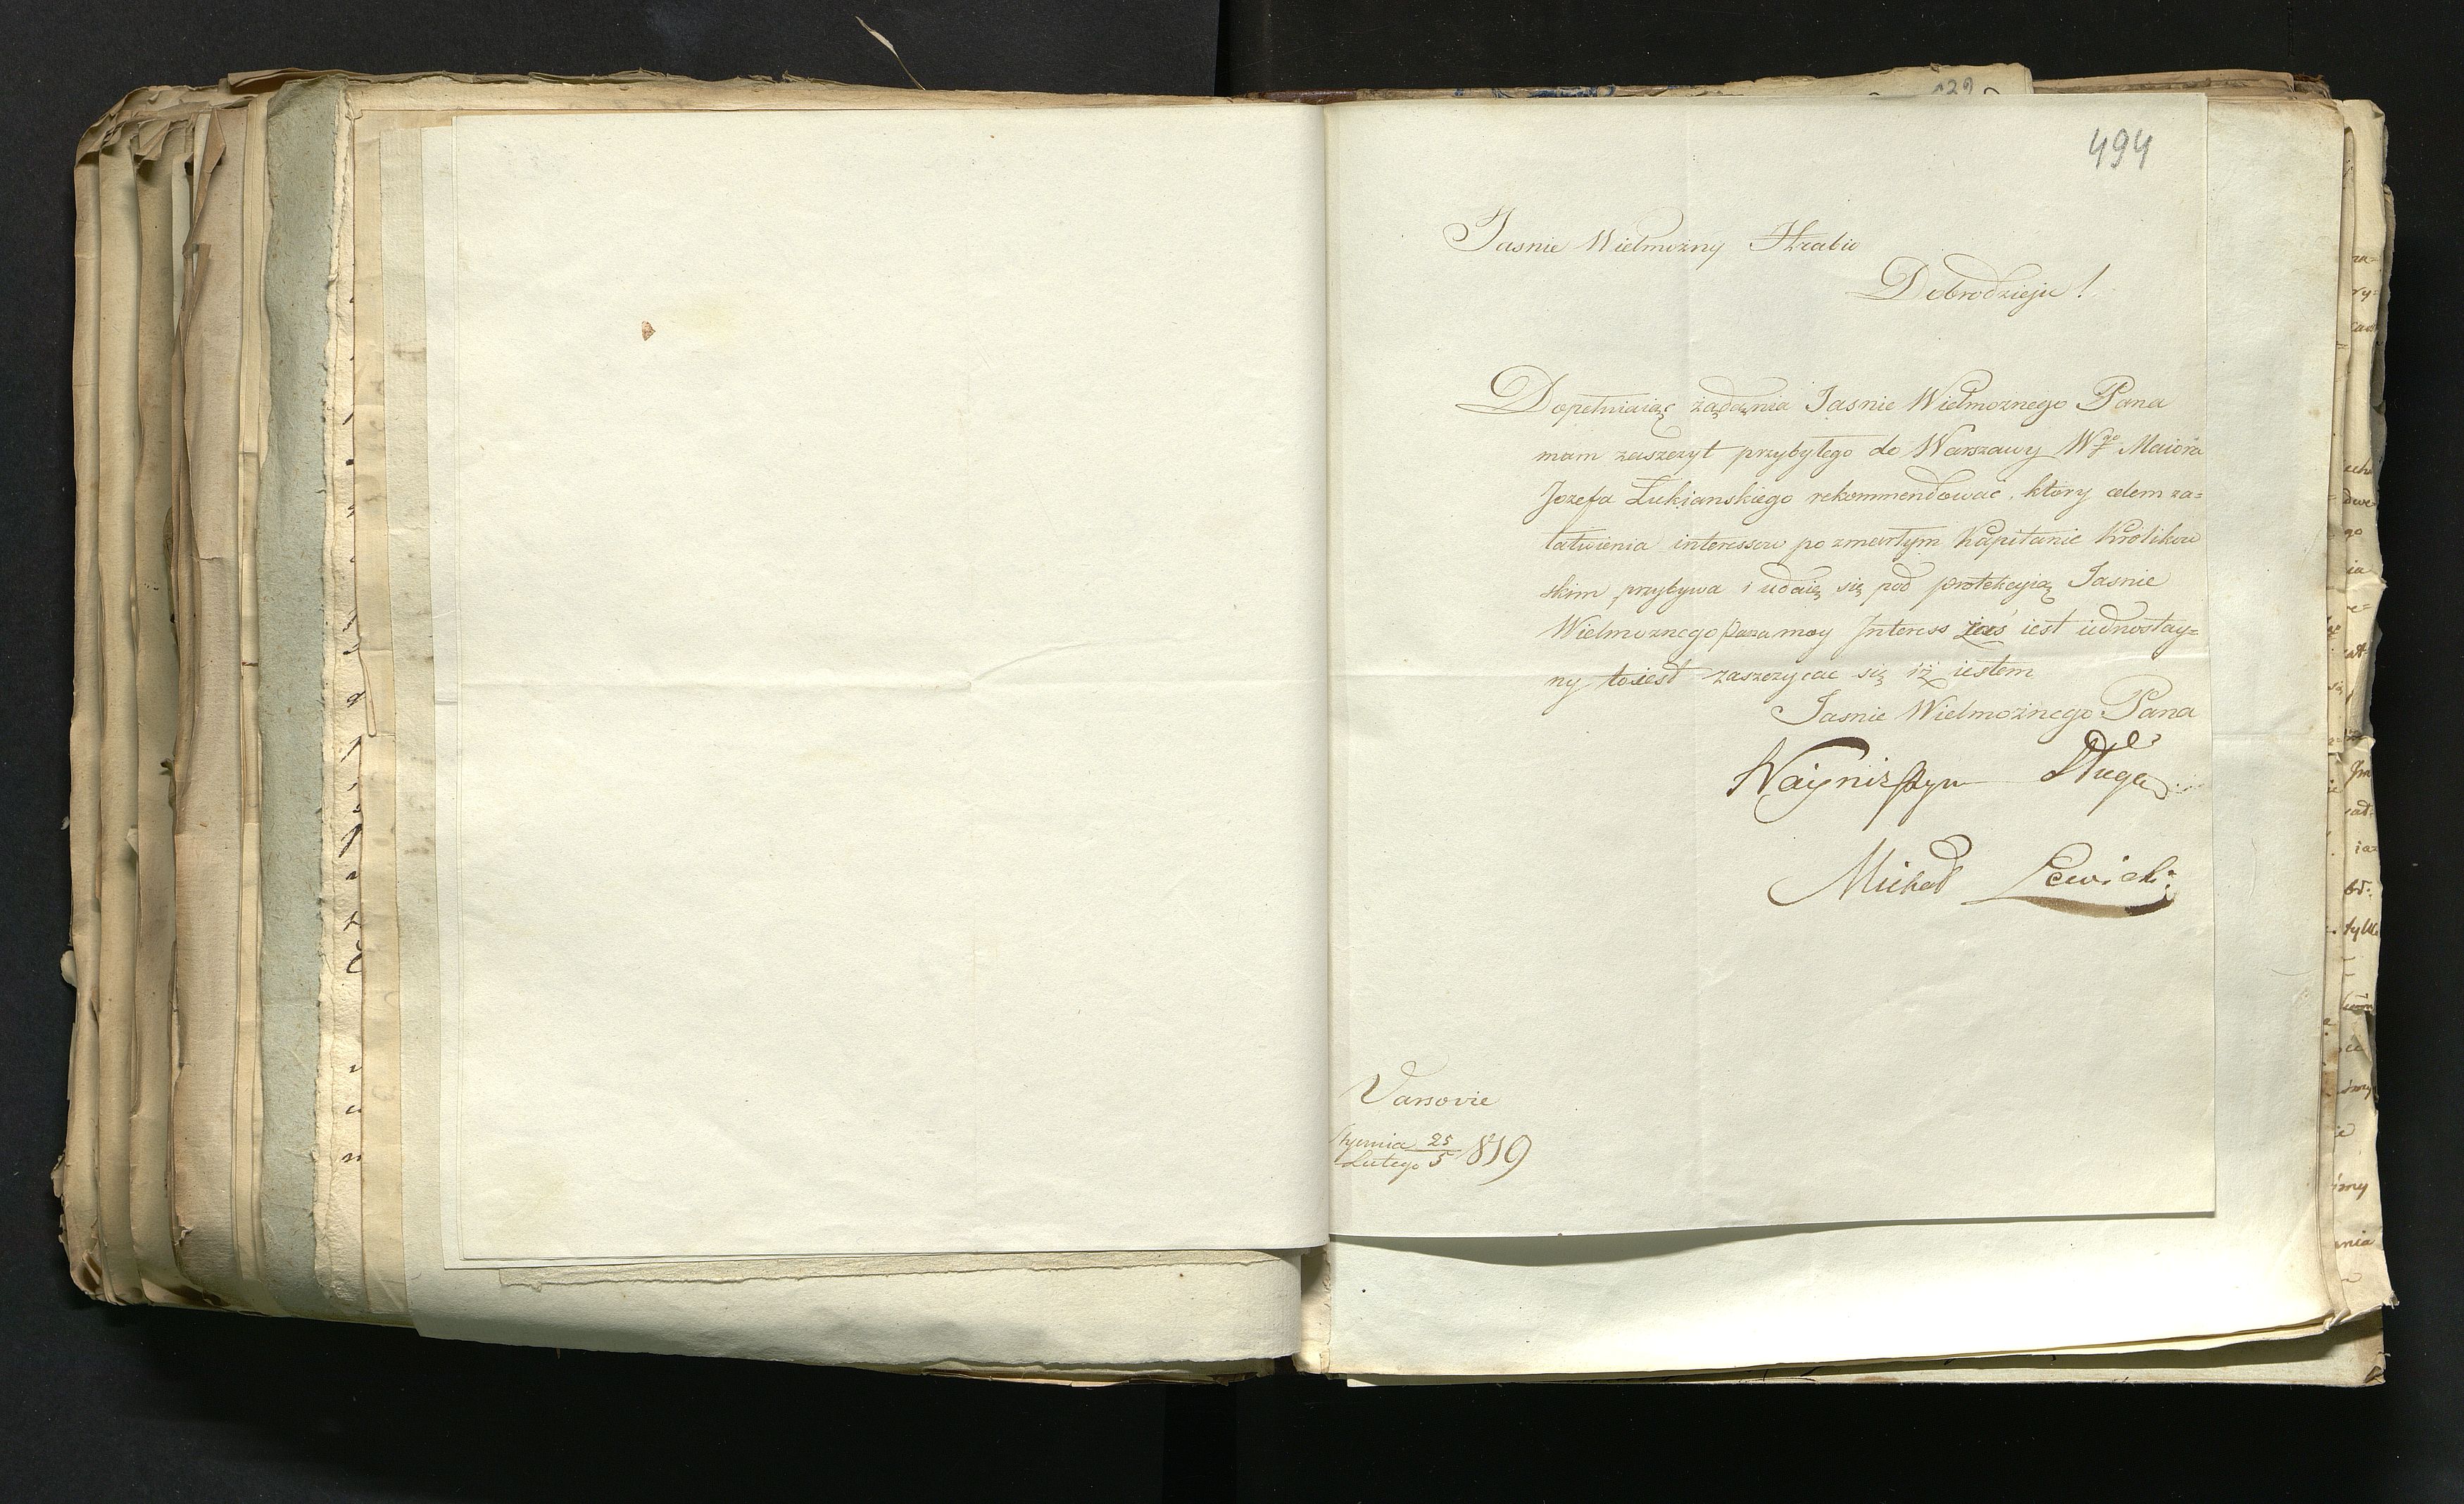 494
Jasnie Wielmożny Hrabio
Dobrodzieju!
Dopełniaiąc żądania Jasnie Wielmożnego Pana
mam zaszczyt przybyłego do Warszawy Wgo Maiora
Jozefa Łukianskiego rekommendować, ktory celem za=
łatwienia interessow po zmarłym Kapitanie Królikow
skim przybywa i udaię się pod protekcyią Jasnie
Wielmożnego Pana moy Interess zaś iest iednostay=
ny toiest zaszczycac się iż iestem
Jasnie Wielmożnego Pana
Nayniższym Sługą
Michał Lewicki
Varsovie
Stycznia 25
Lutego 5 819